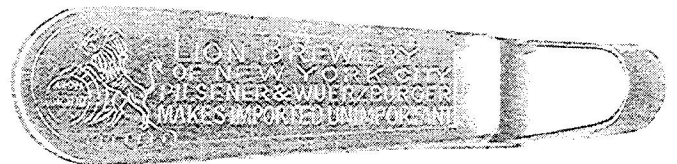 LION BREWERY
OF NEW YORK CITY
PILSENER & WUERZBURGER
MAKES IMPORTED UNIMPORTANT